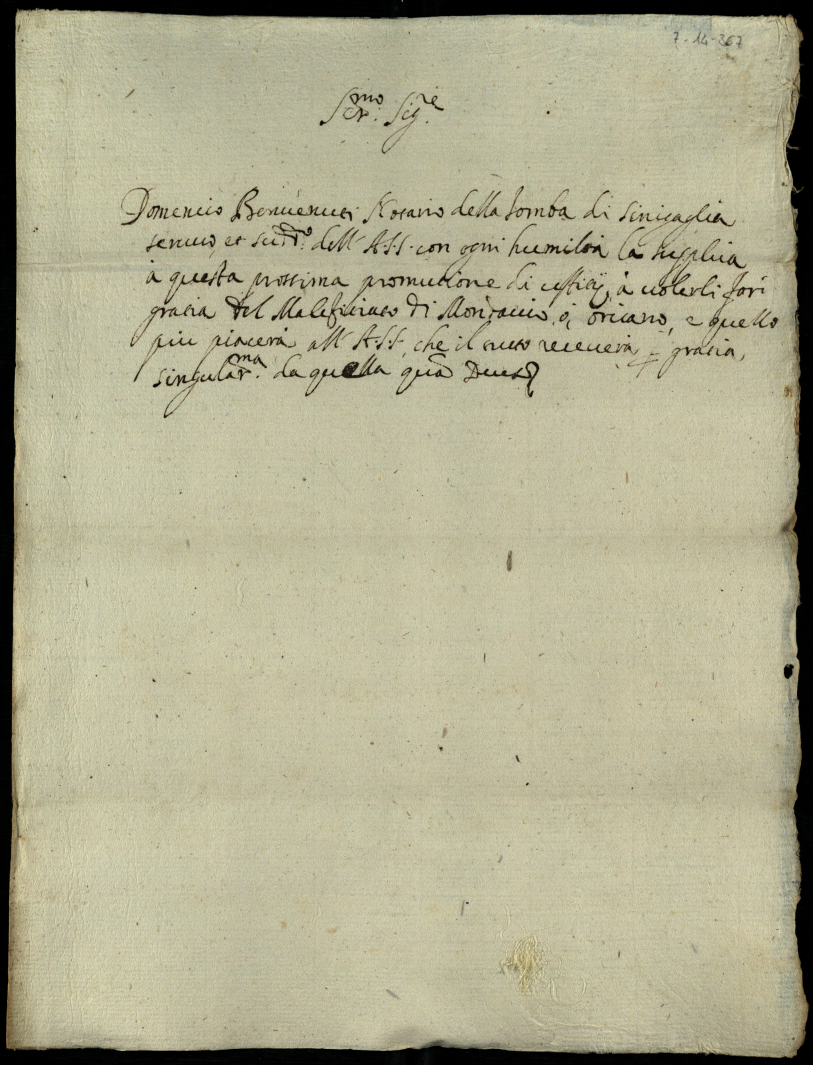 7-14-267
Ser.mo Sig.re
Domenico Benuenuti Notario della Tomba di Sinigaglia
seruo, et sud.to dell' A.S.S. con ogni humiltà la supplica
à questa prossima promutione di uffitij, à uolerli far
gratia del Maleficiato di Mondauio, ò, Orciano, e quello
più piacerà all' A.S.S. che il tutto receuerà p gratia,
singular.ma da quella quā Deus